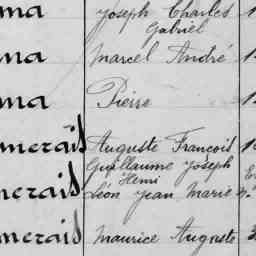 ma Joseph Charles 1
Gabriel
ma Marcel André 1
ma Pierre 1
merais Auguste François 1
Guillaume Joseph
Henri
merais Léon Jean Marie
merais Maurice Auguste